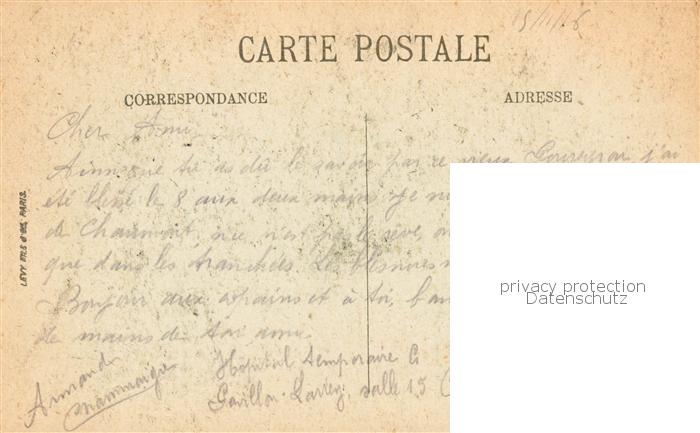 15/11/16
CARTE POSTALE
CORRESPONDANCE
ADRESSE
Cher Ami
Ainsi que tu as dû le savoir par ce vieux j'ai
été blessé le 8 aux deux mains. Je
de Chaumont, ce n'est pas le rêve,
que dans les tranchées. Les blessures
Bonjour aux copains et à toi,
de mains de ton ami.
Armand
Hôpital temporaire
Pavillon Larrey, salle 15
LEVY FILS & Cie, PARIS.
privacy protection
Datenschutz